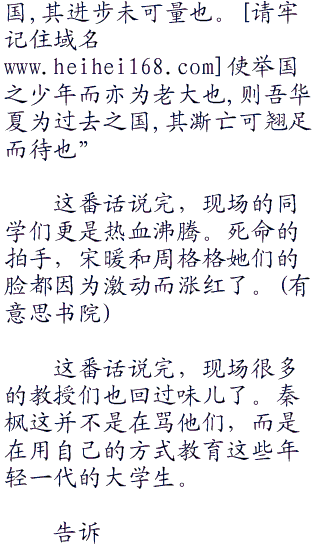 国,其进步未可量也。[请牢
记住域名
www.heihei168.com]使举国
之少年而亦为老大也,则吾华
夏为过去之国,其澌亡可翘足
而待也”
这番话说完，现场的同
学们更是热血沸腾。死命的
拍手，宋暖和周格格她们的
脸都因为激动而涨红了。(有
意思书院)
这番话说完，现场很多
的教授们也回过味儿了。秦
枫这并不是在骂他们，而是
在用自己的方式教育这些年
轻一代的大学生。
告诉